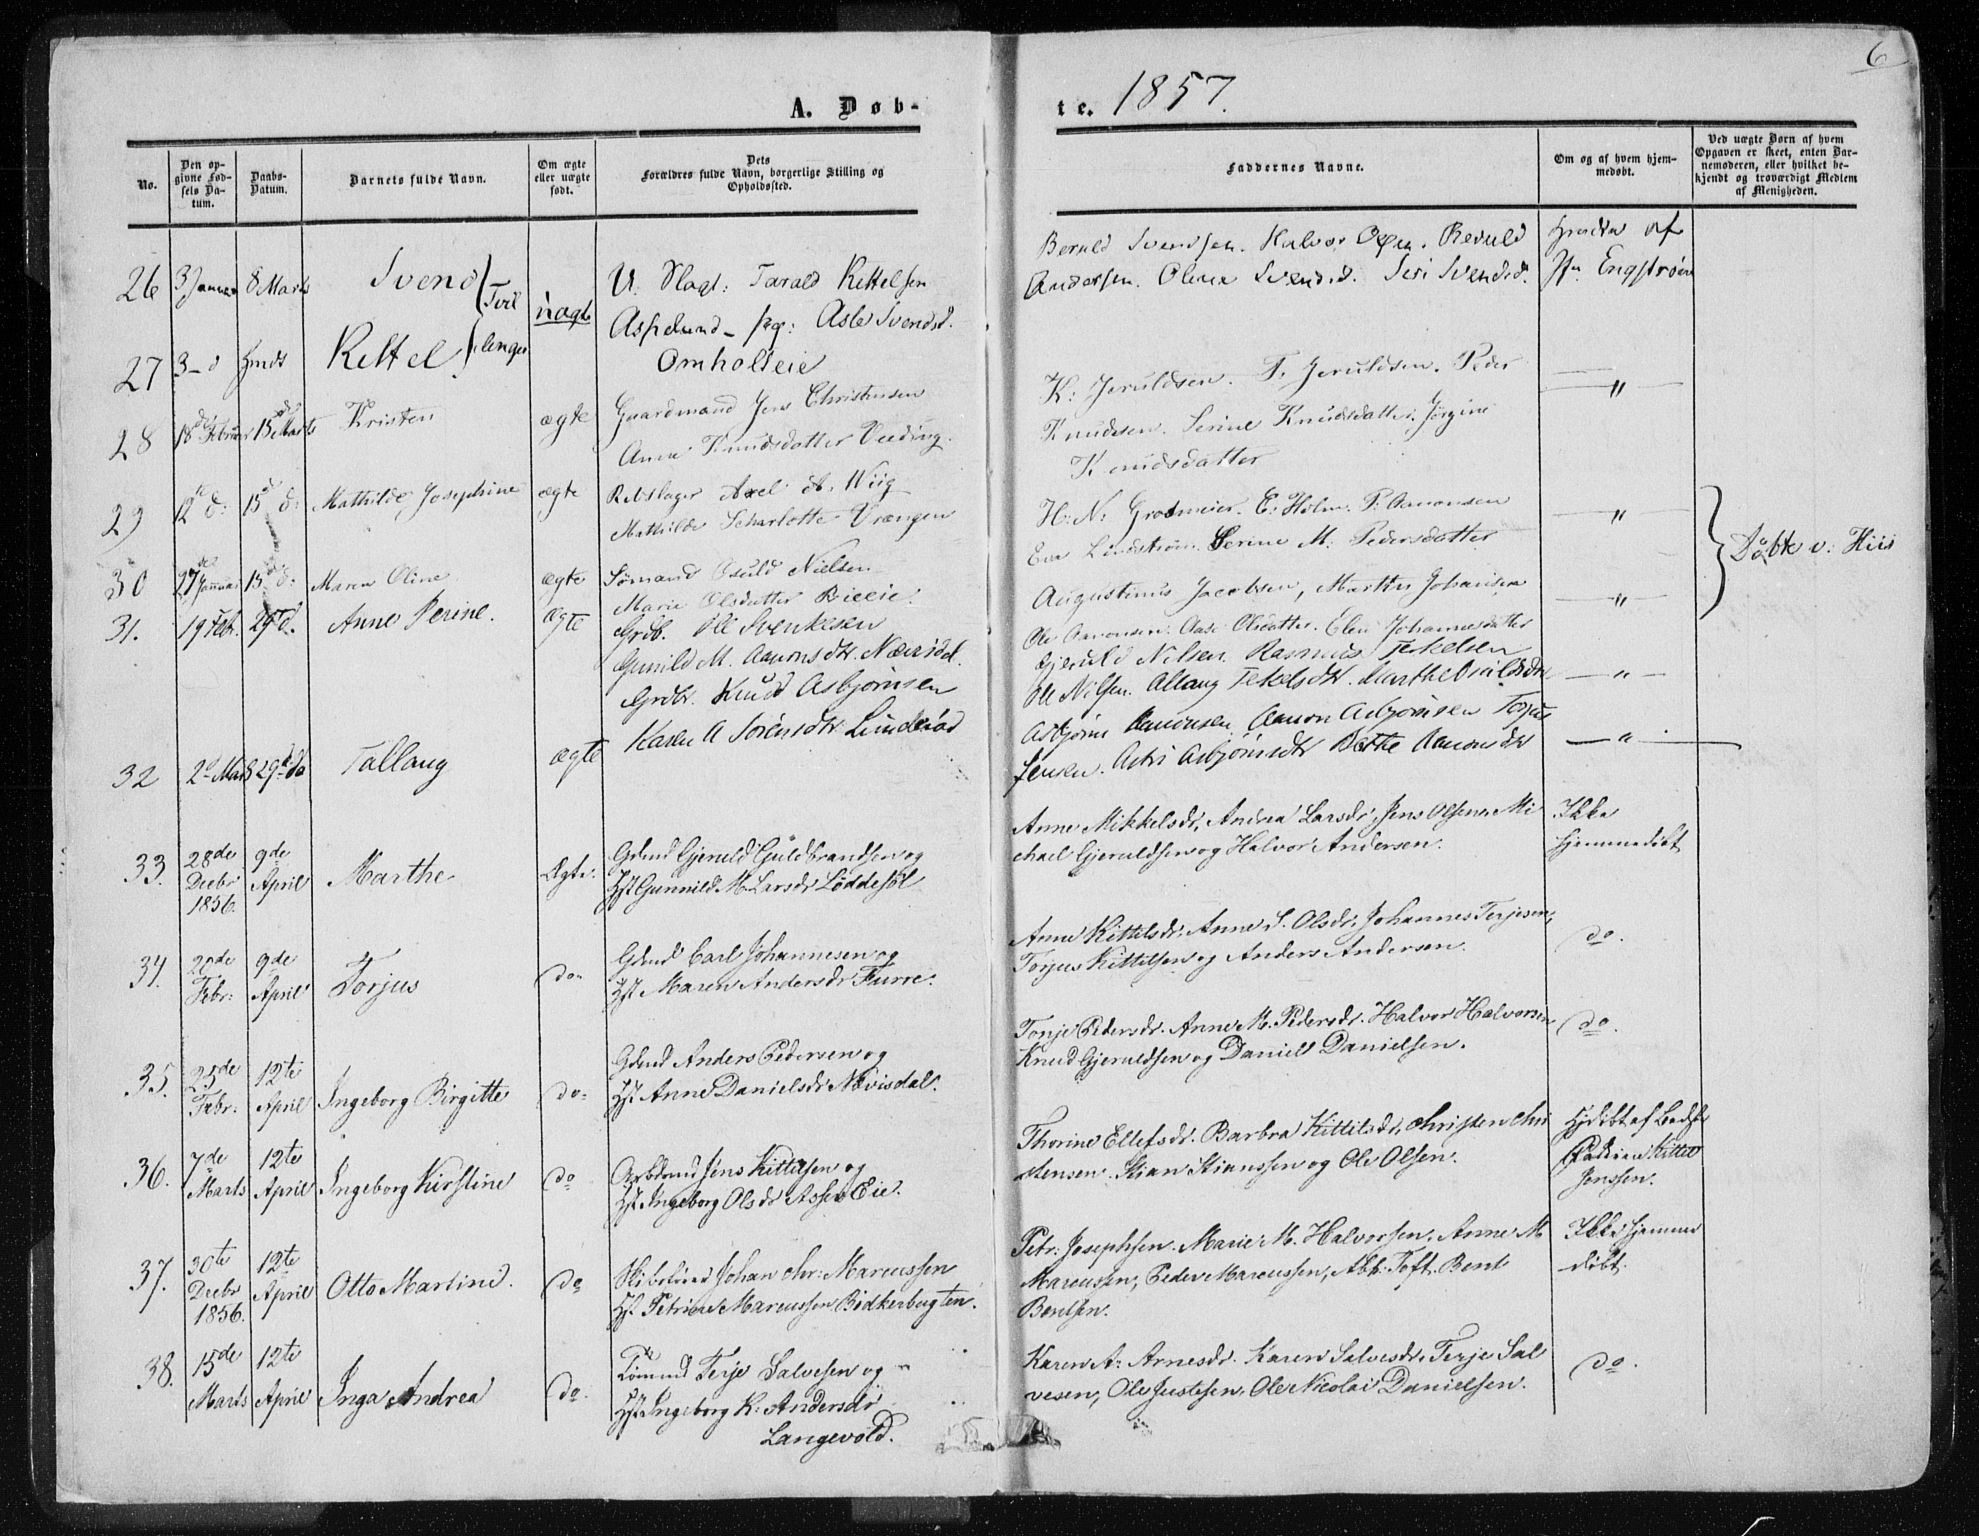 6
A. Døb-
te. 1857.
No.
Den op-
givne Fød-
sels Da-
tum.
Daabs-
Datum.
Barnets fulde Navn.
Om ægte
eller uægte
født.
Dets
Forældres fulde Navn, borgerlige Stilling og
Opholdssted.
Faddernes Navne.
Om og af hvem hjem-
medøbt.
Ved uægte Børn af hvem
Opgaven er skeet, enten Bar-
nemoderen, eller hvilket be-
kjendt og troværdigt Medlem
af Menigheden.
26 3 Januar 8 Marts Svend Tvil uægte
U. Slagt: Tarald Kettelsen
Aspelund - pg: Asle Svendsd.
Omholteie
Beruld Svendsen. Halvor Olsen. Beruld
Andersen. Olena Svendsd. Siri Svendsd.
af
Engstrøm
27 3 - d Kettel linger
28 18de Februar 15de Marts Kristen ægte
Gaardmand Jens Christensen
Anne Knudsdatter Veding.
K: Jeruldsen. T. Jeruldsen. Peder
Knudsen. Serine Knudsdatter, Jørgine
Knudsdatter
— " —
29 12te d: 15d d: Mathilde Josephine ægte
Rebslager Axel A. Wiig
Mathilde Scharlotte Vrængen
H: N: Grodmeier. E: Holm. P. Aanonsen
Eva Lindstrøm. Serine M: Pedersdatter
— " —
Døbte v: Hiis
30 27de Januar 15d d: Maren Oline ægte
Sømand Osuld Nielsen
Marie Olsdatter Bieeie.
Augustinus Jacobsen, Marthe Johansen
Ole Aanonsen. Aase Olsdatter. Elen Johannesdatter
— " —
31. 19 Feb. 29de d. Anne Perine. ægte
Grdb. Ole Svenkesen
Gunild M. Aanonsdtr. Næviedal.
Gjeruld Nilsen. Rasmus Terkelsen
Ole Nilsen. Allaug Tekelsdtr. Marthe Osuldsdtr
— " —
32 2d Marts 29de do Tallaug ægte
Grdbr. Knud Asbjørnsen
Karen A Sørensdtr Linderød
Asbjørn Aanonsen Aanon Asbjørnsen Torjus
Jensen. Astri Asbjørnsdtr Berthe Aanonsdtr
— " —
33. 28de Decbr 1856. 9de April Marthe Ægte.
Gdmd Gjeruld Guldbrandsen og
Hst Gunnild M. Larsdr Løddesøl
Anne Mikkelsdr, Andrea Larsdr, Jens Olsen, Mi
chael Gjeruldsen og Halvor Andersen.
Ikke
hjemmedøbt
34. 20de Febr: 9de April Torjus do.
Gdmd Carl Johannesen og
Hst Maren Andersdr Furre.
Anne Kittilsdr, Anne S. Olsdr, Johannes Terjesen,
Torjus Kittilsen og Anders Andersen.
do.
35. 25de Febr: 12te April Ingeborg Birgitte do.
Gdmd Anders Pedersen og
Hst Anne Danielsdr Nævisdal.
Tonje Pedersdr. Anne M. Pedersdr. Halvor Halvorsen
Knud Gjeruldsen og Daniel Danielsen.
do.
36. 7de Marts 12te April Ingeborg Kirstine do
Arbdmd Jens Kittilsen og
Hst Ingeborg Olsdr Assev Eie.
Thorine Ellefsdr. Barbra Kittilsdr, Christen Chri
stensen. Stian Stianssen og Ole Olsen.
Hjdøbt af Bedste
fader Kittel
Jenssen.
37. 30te Decbr 1856. 12te April Otto Martine. do
Skibsfører Johan Chr: Marcussen
Hst. Petrine Marcussen Bødkerbugten.
Petr: Josephsen. Marie M. Halvorsen, Anne M
Marcussen, Peder Marcussen, Abr: Toft. Bent
Bentsen.
Ikke hjemme
døbt.
38. 15de Marts 12te April Inga Andrea do.
Tømmd Terje Salvesen og
Hst Ingeborg K: Andersdr
Langevold.
Karen A: Arnesdr. Karen Salvesdr, Terje Sal
vesen, Ole Justesen, Ole Nicolai Danielsen.
do.